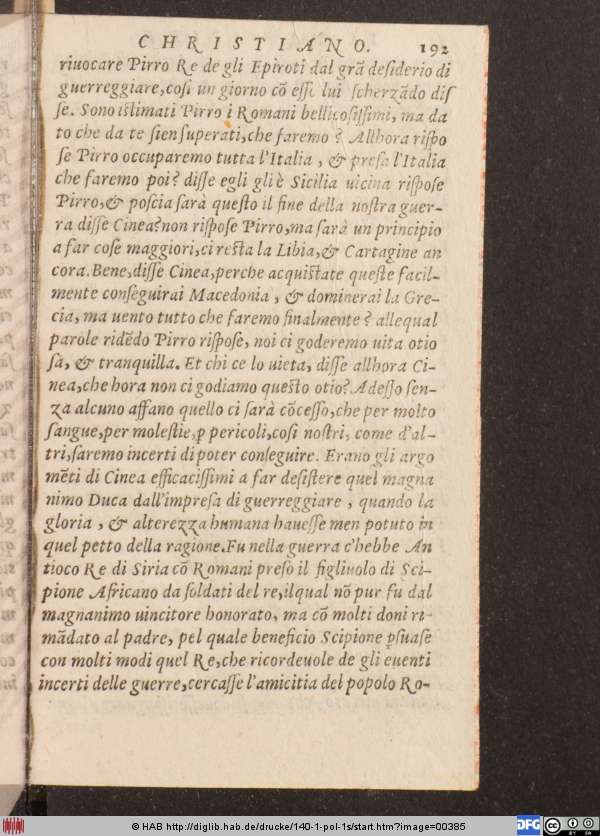 CHRISTIANO. 192
riuocare Pirro Re de gli Epiroti dal grã desiderio di
guerreggiare, cosi un giorno cõ esso lui scherzãdo dis
se. Sono istimati Pirro i Romani bellicosissimi, ma da
to che da te sien superati, che faremo? Allhora rispo
se Pirro occuparemo tutta l'Italia, & presa l'Italia
che faremo poi? disse egli gli è Sicilia uicina rispose
Pirro, & poscia sarà questo il fine della nostra guer-
ra disse Cinea? non rispose Pirro, ma sarà un principio
a far cose maggiori, ci resta la Libia, & Cartagine an
cora. Bene, disse Cinea, perche acquistate queste facil-
mente conseguirai Macedonia, & dominerai la Gre-
cia, ma uento tutto che faremo finalmente? alle qual
parole ridẽdo Pirro rispose, noi ci goderemo uita otio
sa, & tranquilla. Et chi ce lo uieta, disse allhora Ci-
nea, che hora non ci godiamo questo otio? Adesso sen-
za alcuno affano quello ci sarà cõcesso, che per molto
sangue, per molestie, ꝑ pericoli, cosi nostri, come d'al-
tri, saremo incerti di poter conseguire. Erano gli argo
mẽti di Cinea efficacissimi a far desistere quel magna
nimo Duca dall'impresa di guerreggiare, quando la
gloria, & alterezza humana hauesse men potuto in
quel petto della ragione. Fu nella guerra c'hebbe An
tioco Re di Siria cõ Romani preso il figliuolo di Sci-
pione Africano da soldati del re, ilqual nõ pur fu dal
magnanimo uincitore honorato, ma cõ molti doni ri-
mãdato al padre, pel quale beneficio Scipione ꝑsuase
con molti modi quel Re, che ricordeuole de gli euenti
incerti delle guerre, cercasse l'amicitia del popolo Ro-
© HAB http://diglib.hab.de/drucke/140-1-pol-1s/start.htm?image=00385
DFG
cc BY SA